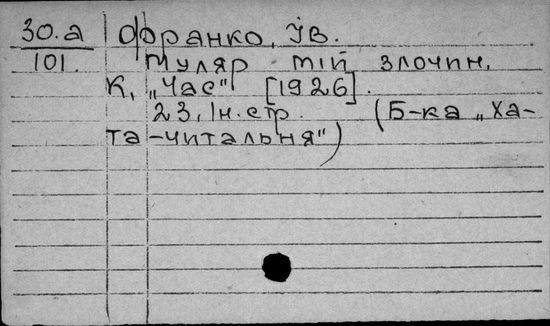 30.а Франко, Ів.
101. Муляр мій злочин.
К, „Час" [1926].
23, Iн. стр. (Б-ка „Ха-
та-читальня")